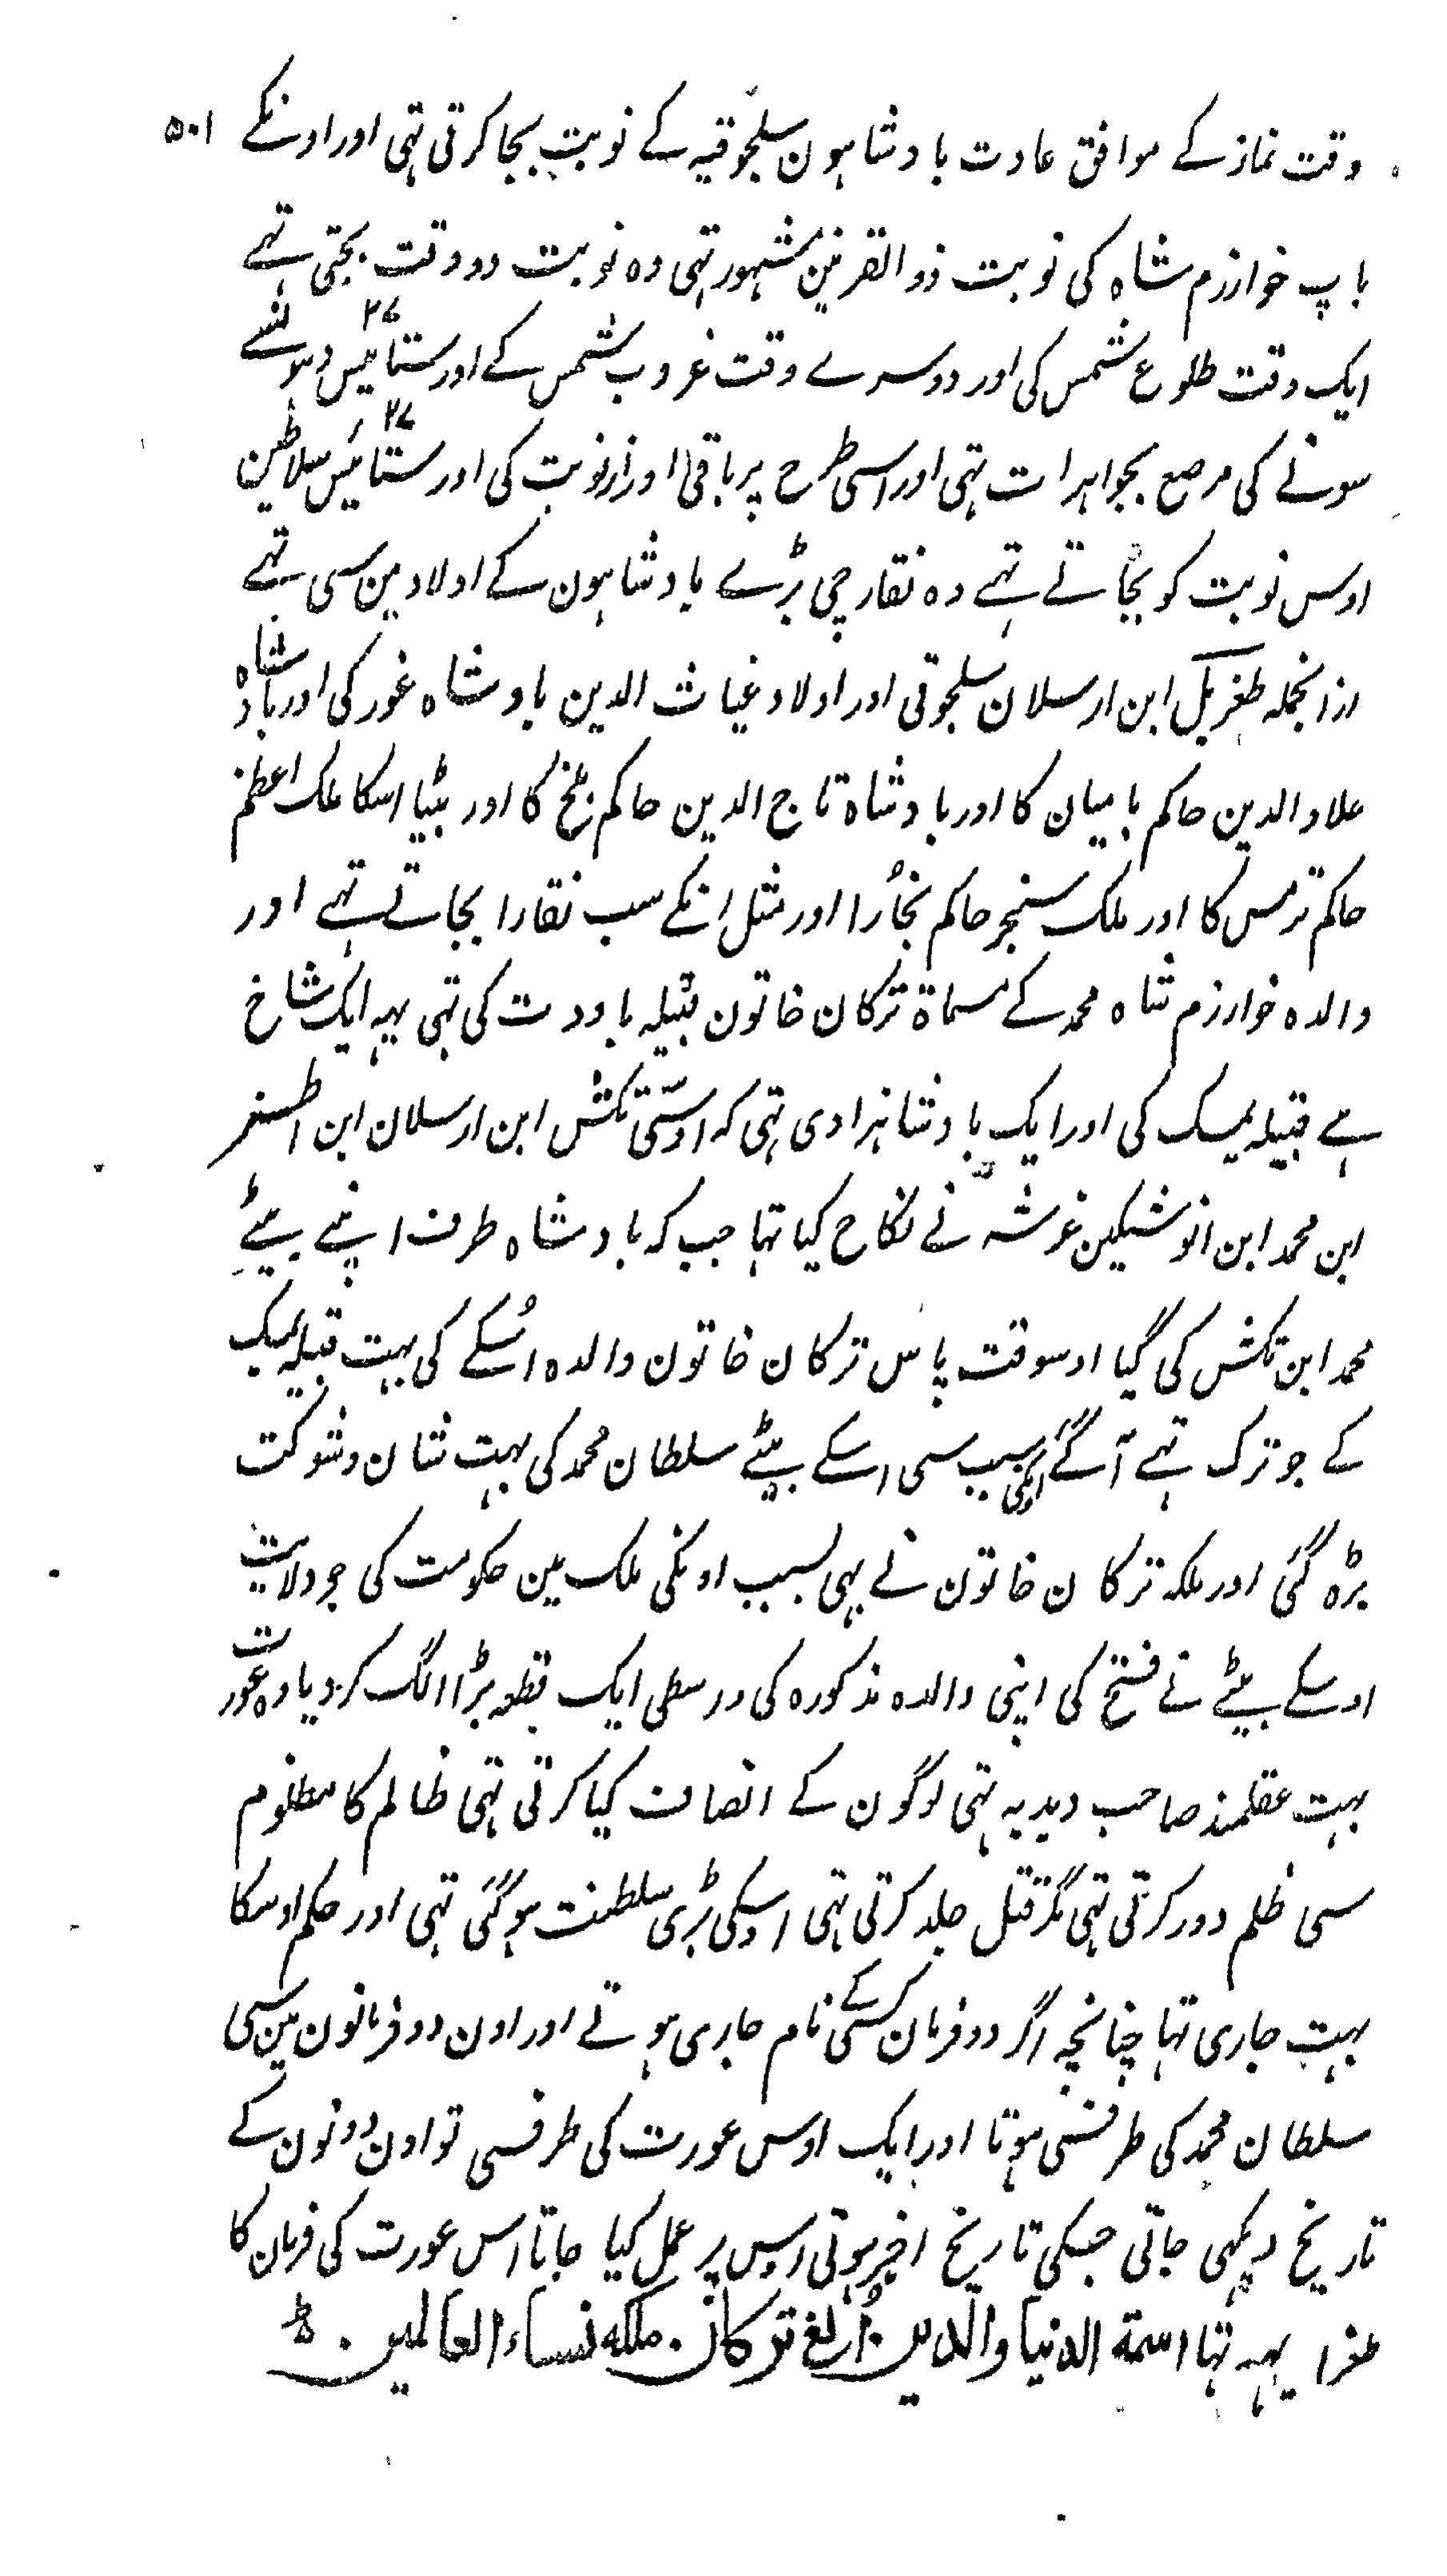 ۵۰۱
وقت نماز کے موافق عادت بادشاہون سلجوقیہ کے نوبت بجا کرتی تہی اور اونکے
باپ خوارزم شاہ کی نوبت ذوالقرنین مشہور تہی وہ نوبت دو وقت بجتی تہے
ایک وقت طلوع شمس کی اور دوسرے وقت غروب شمس کے اور ستائیس ۲۷
سونے کی مرصع بجواہرات تہی اور اسی طرح پر باقی اوزار نوبت کی اور ستائیس ۲۷ سلاطین
اوس نوبت کو بجاتے تہے وہ نقارچی بڑے بادشاہون کے اولاد مین سی تہے
ازانجملہ طغربک ابن ارسلان سلجوقی اور اولاد غیاث الدین بادشاہ غور کی اور بادشاہ
علاو الدین حاکم بامیان کا اور بادشاہ تاج الدین حاکم بلخ کا اور بٹیا اسکا ملک اعظم
حاکم ترمس کا اور ملک سنجر حاکم بخارا اور مثل انکے سب نقارا بجاتے تہے اور
والدہ خوارزم شاہ محمد کے مسماۃ ترکان خاتون قبیلہ باودت کی تہی یہہ ایک شاخ
ہے قبیلہ یمک کی اور ایک بادشاہزادی تہی کہ اوستی تکش ابن ارسلان ابن اطسز
ابن محمد ابن انوشتکین غرشہ نے نکاح کیا تہا جب کہ بادشاہ طرف اپنے بیٹے
محمد ابن تکش کی گیا اوسوقت پاس ترکان خاتون والدہ اُسکے کی بہت قبیلہ یمک
کے جو ترک تہے آگئے انکی سبب سی اسکے بیٹے سلطان محمد کی بہت شان و شوکت
بڑہ گئی اور ملکہ ترکان خاتون نے بہی بسبب اونکی ملک مین حکومت کی جو ولایت
اوسکے بیٹے نے فتح کی اپنی والدہ مذکورہ کی واسطی ایک قطعہ بڑا الگ کر دیا وہ عورت
بہت عقلمند صاحب دبدبہ تہی لوگون کے انصاف کیا کرتی تہی ظالم کا مظلوم
سی ظلم دور کرتی تہی مگر قتل جلد کرتی تہی اوسکی بڑی سلطنت ہوگئی تہی اور حکم اوسکا
بہت جاری تہا چنانچہ اگر دو فرمان کسی کے نام جاری ہوتے اور اون دو فرمانون مین سی
سلطان محمد کی طرفسی ہوتا اور ایک اوس عورت کی طرفسی تو اون دونون کے
تاریخ دیکہی جاتی جسکی تاریخ اخیر ہوتی اوس پر عمل کیا جاتا اس عورت کی فرمان کا
طغرا یہہ تہا اسمة الدنیا والدین اُلغ ترکان ملکه نساء العالمین